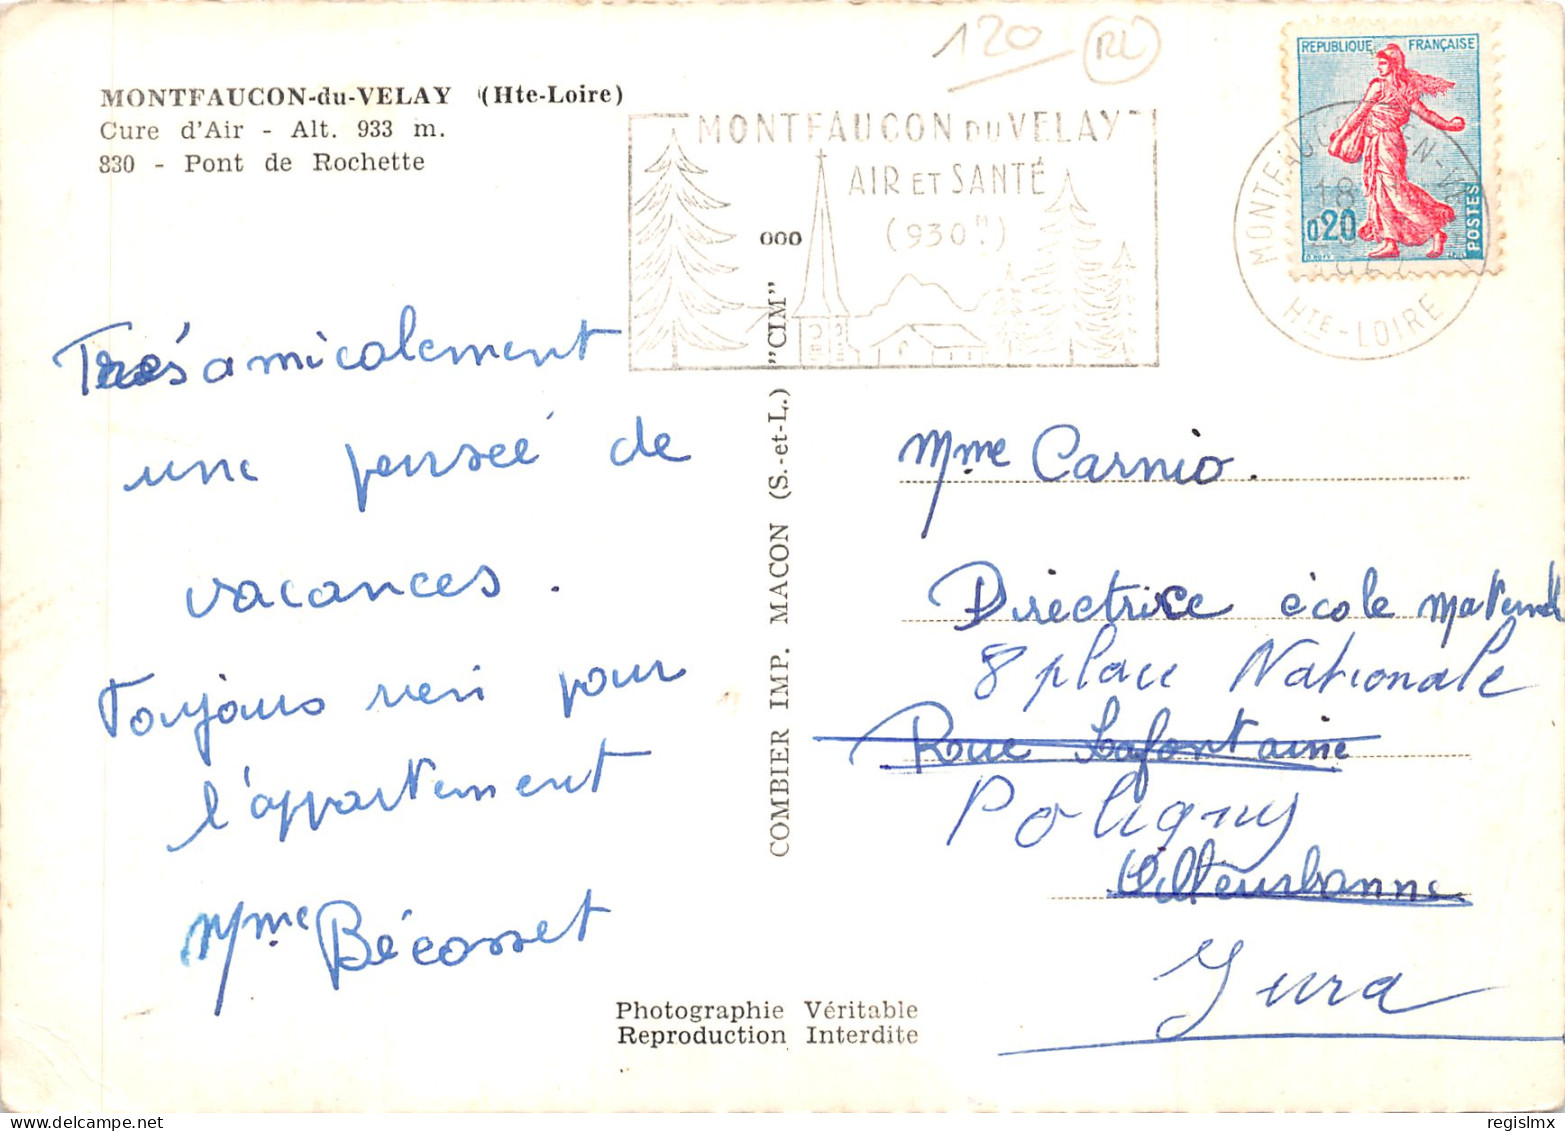 120 RL
MONTFAUCON-du-VELAY (Hte-Loire)
Cure d'Air - Alt. 933 m.
830 - Pont de Rochette
MONTFAUCON DU VELAY
AIR ET SANTÉ
(930 M.)
ooo
REPUBLIQUE FRANÇAISE
0,20
POSTES
MONTFAUCON-EN-VELAY
18
HTE-LOIRE
Très amicalement
une pensée de
vacances.
Toujours rien pour
l'appartement
Mme Bécosset
COMBIER IMP. MACON (S.-et-L.) "CIM"
Mme Carnio.
Directrice école maternelle
8 place Nationale
Rue Lafontaine
Poligny
Villeurbanne
Jura
Photographie Véritable
Reproduction Interdite
regislmx